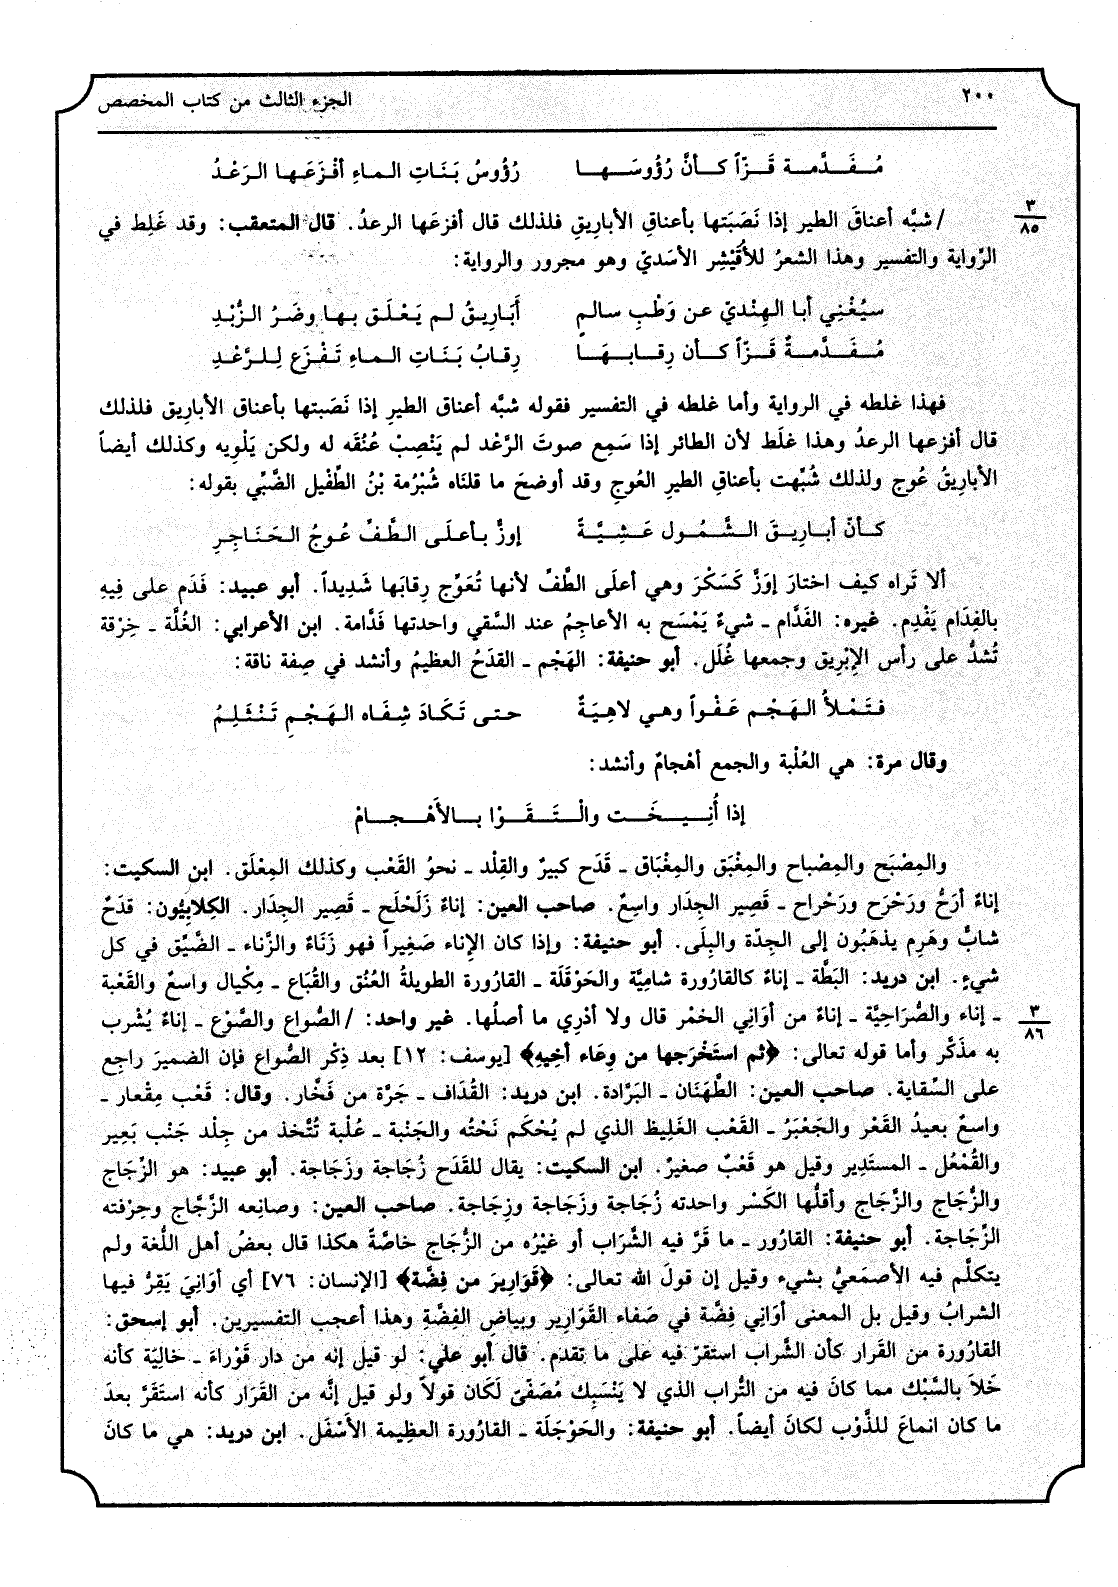 ٢٠٠ الجزء الثالث من كتاب المخصص
مُفَدَّمة قَزّاً كأنَّ رُؤوسَها رُؤوسُ بَنَاتِ الماءِ أفْزَعَها الرَعْدُ
٣
٨٥
/ شبَّه أعناقَ الطير إذا نَصَبَتها بأعناقِ الأبارِيقِ فلذلك قال أفزعَها الرعدُ. قال المتعقب: وقد غَلِط في
الرِّواية والتفسير وهذا الشعرُ للأُقَيْشِر الأسَديّ وهو مجرور والرواية:
سيُغْنِي أبا الهِنْديّ عن وَطْبِ سالمٍ أَبَارِيقُ لم يَعْلَق بها وضَرُ الزُّبْدِ
مُفَدَّمةٌ قَزّاً كأن رِقابهَا رِقابُ بَنَاتِ الماءِ تَفْزَع لِلرَّعْدِ
فهذا غلطه في الرواية وأما غلطه في التفسير فقوله شبَّه أعناق الطيرِ إذا نَصَبتها بأعناق الأبارِيق فلذلك
قال أفزعها الرعدُ وهذا غلَط لأن الطائر إذا سَمِع صوتَ الرَّعْد لم يَنْصِبْ عُنُقَه له ولكن يَلْوِيه وكذلك أيضاً
الأبارِيقُ عُوج ولذلك شُبِّهت بأعناقِ الطيرِ العُوجِ وقد أوضحَ ما قلنَاه شُبْرُمة بْنُ الطُّفَيل الضَّبِّي بقوله:
كأنّ أبارِيقَ الشَّمُول عَشِيَّةً إوزٌّ بأعلَى الطَّفِّ عُوجُ الحَنَاجِرِ
ألا تَراه كيف اختارَ إوَزَّ كَسَكْرَ وهي أعلَى الطَّفِّ لأنها تُعَوِّج رِقابَها شَدِيداً. أبو عبيد: فَدَم على فِيهِ
بالفِدَام يَفْدِم. غيره: الفَدَّام ـ شيءٌ يَمْسَح به الأعاجِمُ عند السَّقي واحدتها فَدَّامة. ابن الأعرابي: الغُلَّة ـ خِرْقة
تُشدُّ على رأس الإبْرِيق وجمعها غُلَل. أبو حنيفة: الهَجْم ـ القدَحُ العظيمُ وأنشد في صِفة ناقة:
فتَمْلأُ الهَجْم عَفْواً وهي لاهِيَةٌ حتى تَكادَ شِفَاه الهَجْمِ تَنْثَلِمُ
وقال مرة: هي العُلْبة والجمع أهْجامٌ وأنشد:
إذا أُنِيخَت والْتَقَوْا بالأَهْجامْ
والمِصْبَح والمِصْباح والمِغْبَق والمِغْبَاق ـ قَدَح كبيرٌ والقِلْد ـ نحوُ القَعْب وكذلك المِعْلَق. ابن السكيت:
إناءٌ أرَحُّ ورَحْرَح ورَحْراح ـ قَصِير الجِدَار واسِعٌ. صاحب العين: إناءٌ زَلَحْلَح ـ قَصِير الجِدَار. الكِلابِيُّون: قَدَحٌ
شابٌّ وهَرِم يذهَبُون إلى الجِدّة والبِلَى. أبو حنيفة: وإذا كان الإناء صَغِيراً فهو زَنَاءٌ والزَّناء ـ الضَّيِّق في كل
شيءٍ. ابن دريد: البَطَّة ـ إناءٌ كالقارُورة شامِيَّة والحَوْقَلَة ـ القارُورة الطويلةُ العُنُق والقُبَاع ـ مِكْيال واسعٌ والقَعْبة
٣
٨٦
ـ إناء والصُّرَاحِيَّة ـ إناءٌ من أوَانِي الخمْر قال ولا أدْرِي ما أصلُها. غير واحد: /الصُّواع والصَّوْع ـ إناءٌ يُشْرب
به مذَكَّر وأما قوله تعالى: ﴿ثم استَخْرَجها من وِعَاء أخِيهِ﴾ [يوسف: ١٢] بعد ذِكْر الصُّواع فإن الضميرَ راجِع
على السِّقاية. صاحب العين: الطَّهَنَان ـ البَرَّادة. ابن دريد: القُدَاف ـ جَرَّة من فَخَّار. وقال: قَعْب مِقْعار ـ
واسعٌ بعيدُ القَعْر والجَعْبَرُ ـ القَعْب الغَلِيظ الذي لم يُحْكَم نَحْتُه والجَنْبة ـ عُلْبة تُتَّخذ من جِلْد جَنْب بَعِير
والقُمْعُل ـ المستدِير وقيل هو قَعْبٌ صغيرٌ. ابن السكيت: يقال للقَدَح زُجَاجة وزَجَاجة. أبو عبيد: هو الزِّجَاج
والزُّجَاج والزَّجَاج وأقلُّها الكَسْر واحدته زُجَاجة وزَجَاجة وزِجَاجة. صاحب العين: وصانِعه الزَّجَّاج وحِرْفته
الزِّجَاجة. أبو حنيفة: القارُور ـ ما قَرَّ فيه الشَّرَاب أو غيْرُه من الزُّجَاج خاصَّةً هكذا قال بعضُ أهل اللُّغة ولم
يتكلَّم فيه الأصمَعيُّ بشيء وقيل إن قولَ الله تعالى: ﴿قَوارِيرَ من فِضَّة﴾ [الإنسان: ٧٦] أي أوَانِيَ يَقِرُّ فيها
الشرابُ وقيل بل المعنى أوَانِي فِضَّة في صَفاء القَوارِير وبياضِ الفِضَّةِ وهذا أعجب التفسيرين. أبو إسحق:
القارُورة من القَرار كأن الشَّراب استقرّ فيه على ما تقدم. قال أبو علي: لو قيل إنه من دار قَوْراءَ ـ خالِيَة كأنه
خَلاَ بالسَّبْك مما كانَ فيه من التُّراب الذي لا يَنْسَبِك مُصَفّىً لَكان قولاً ولو قيل إنَّه من القَرَار كأنه استَقَرَّ بعدَ
ما كان انماعَ للذَّوْب لكانَ أيضاً. أبو حنيفة: والحَوْجَلَة ـ القارُورة العظِيمة الأَسْفَل. ابن دريد: هي ما كانَ